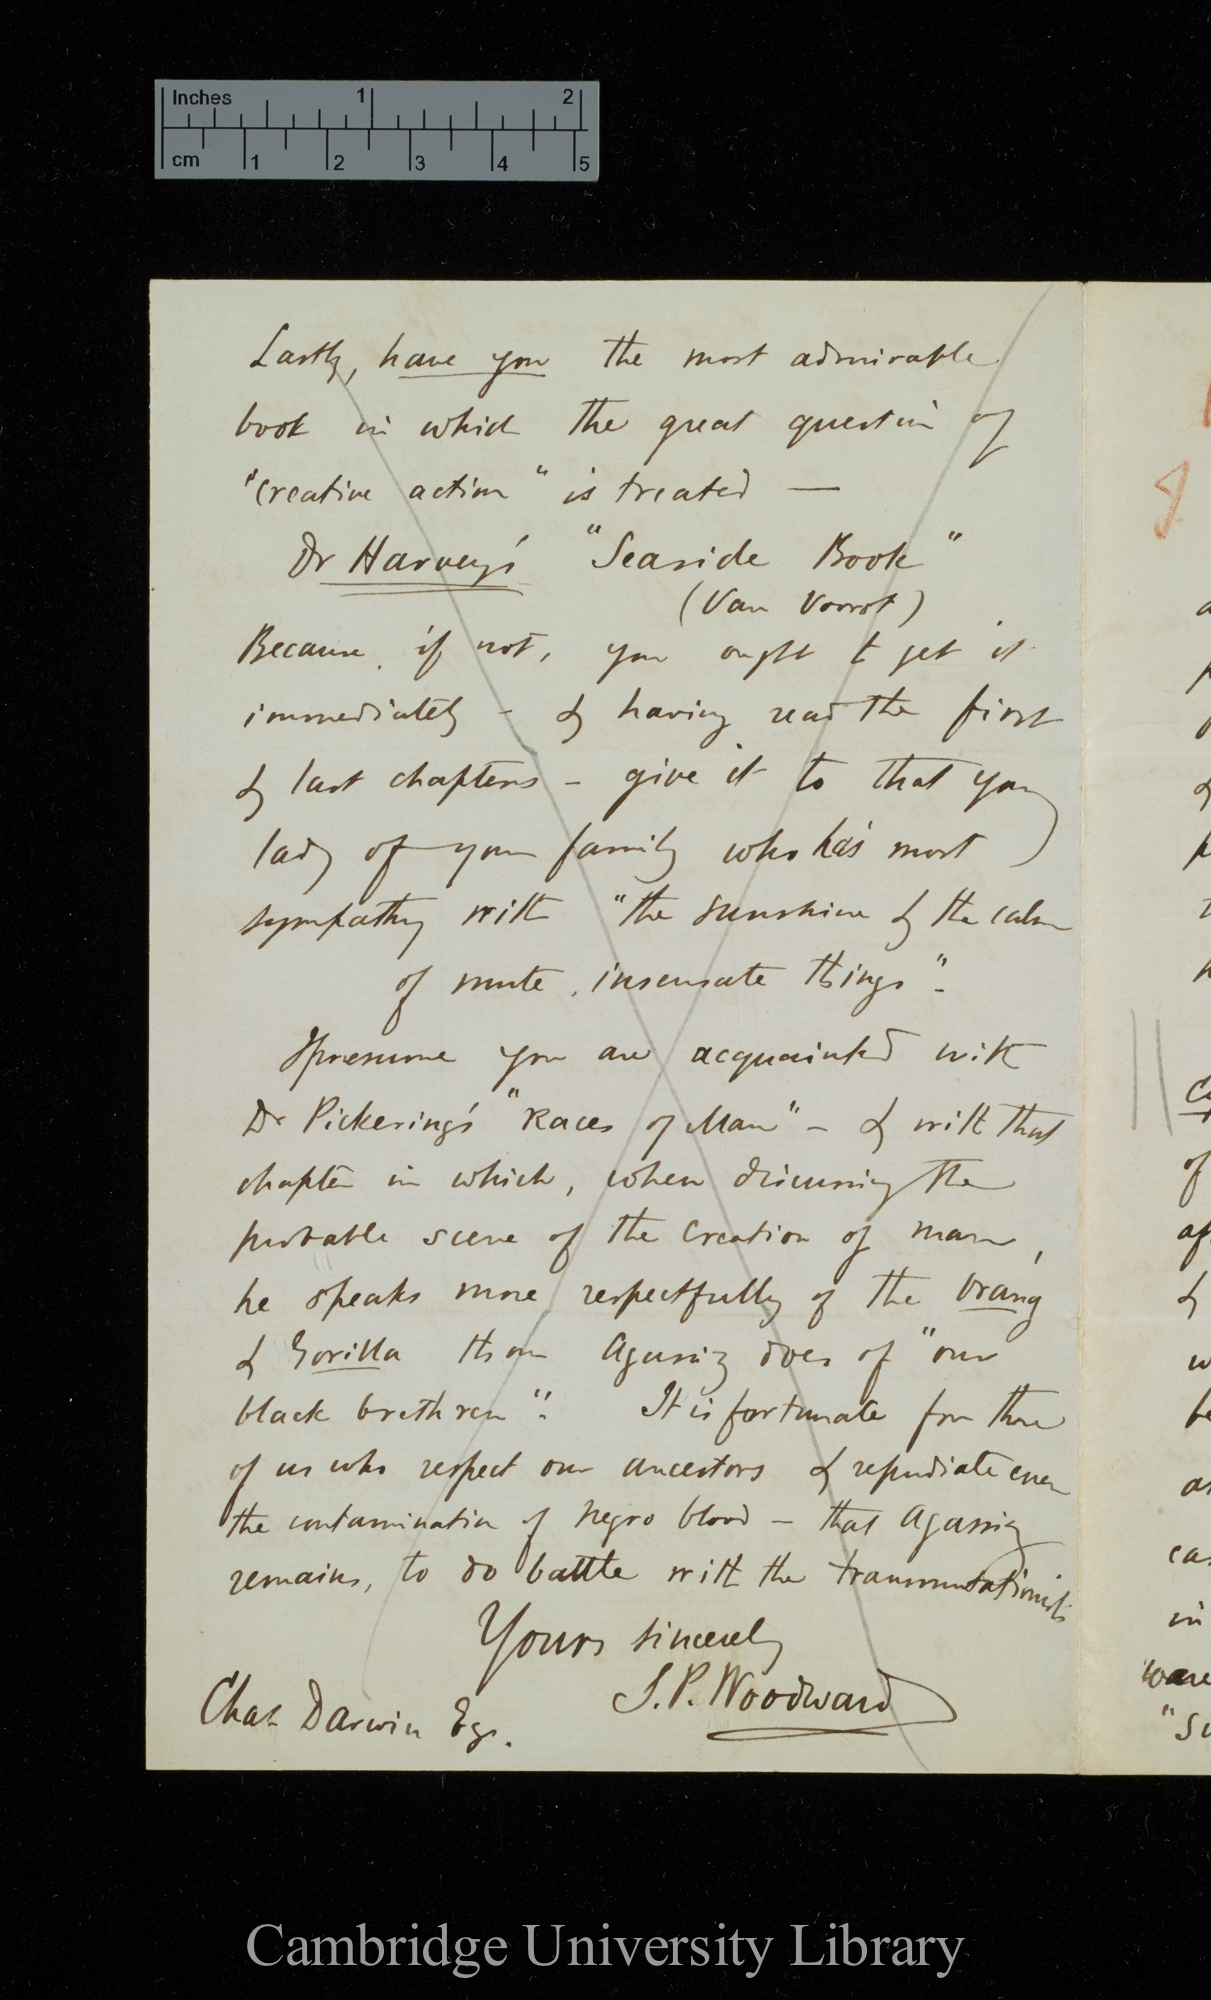 Inches 1 2
cm 1 2 3 4 5
Lastly, have you the most admirable
book in which the great question of
"creative action" is treated —
Dr Harvey's "Seaside Book"
(Van Voorst)
Because, if not, you ought to get it
immediately – & having read the first
& last chapters – give it to that young
lady of your family who has most
sympathy with "the sunshine & the calm
of mute, insensate things".
I presume you are acquainted with
Dr Pickering's "Races of Man" – & with that
chapter in which, when discussing the
probable scene of the creation of man,
he speaks more respectfully of the Orang
& Gorilla than Agassiz does of "our
black brethren". It is fortunate for those
of us who respect our ancestors & repudiate even
the contamination of Negro blood – that Agassiz
remains, to do battle with the transmutationists
Yours sincerely
S. P. Woodward
Chas Darwin Esq.
8
of
&
in
Cambridge University Library